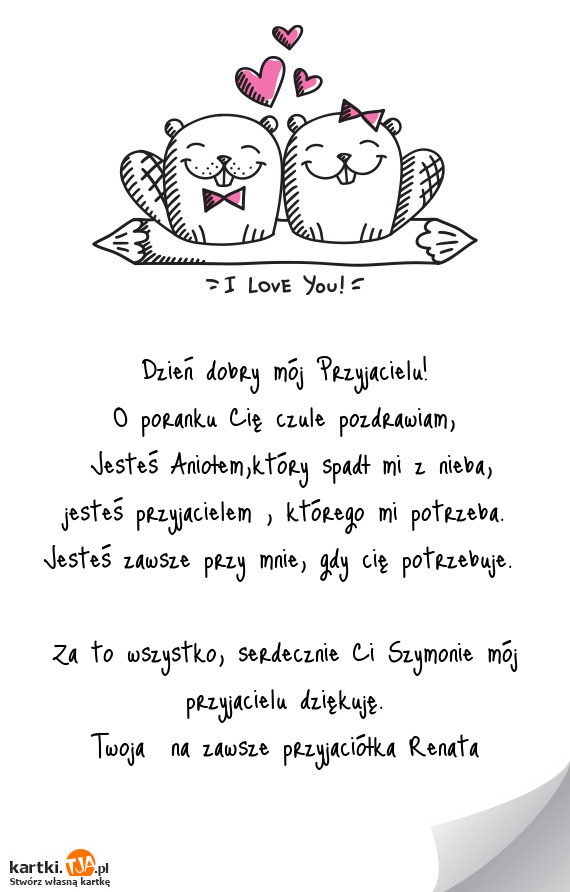 I LOVE YOU!
Dzień dobry mój Przyjacielu!
O poranku Cię czule pozdrawiam,
Jesteś Aniołem,który spadł mi z nieba,
jesteś przyjacielem , którego mi potrzeba.
Jesteś zawsze przy mnie, gdy cię potrzebuje.
Za to wszystko, serdecznie Ci Szymonie mój
przyjacielu dziękuję.
Twoja na zawsze przyjaciółka Renata
kartki.TJA.pl
Stwórz własną kartkę